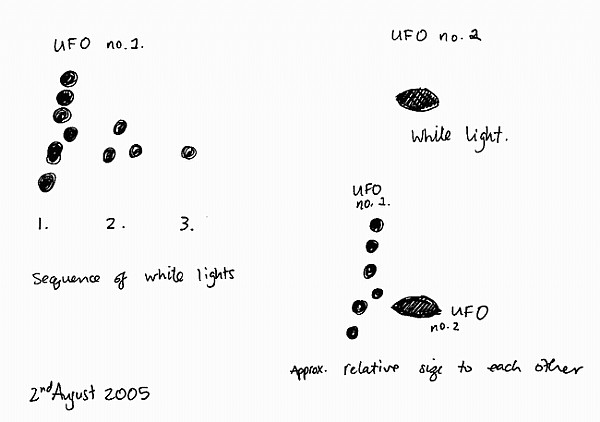 UFO no.1.
1. 2. 3.
Sequence of white lights
2nd August 2005
UFO no.2
White light.
UFO
no.1.
UFO
no.2
Approx. relative size to each other